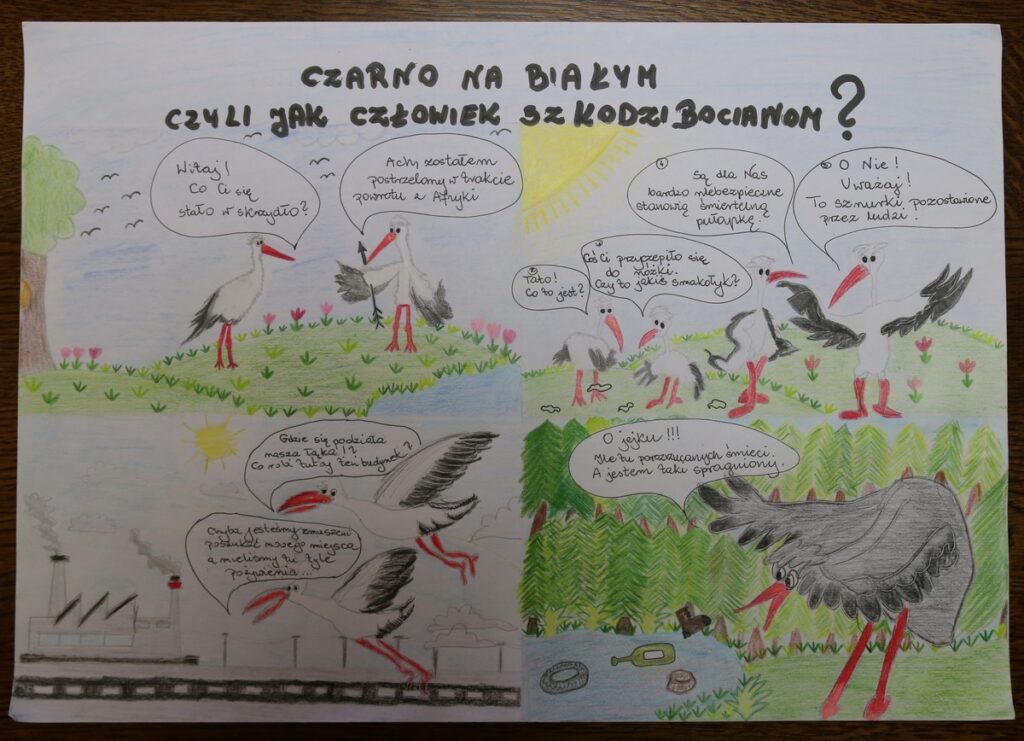 CZARNO NA BIAŁYM
CZYLI JAK CZŁOWIEK SZKODZI BOCIANOM?
Witaj!
Co Ci się
stało w skrzydło?
Ach, zostałem
postrzelony w trakcie
powrotu z Afryki
Tato!
Co to jest?
Coś Ci przyczepiło się
do nóżki.
Czy to jakiś smakołyk?
Są dla Nas
bardzo niebezpieczne
stanowią śmiertelną
pułapkę.
O Nie!
Uważaj!
To sznurki pozostawione
przez ludzi.
Gdzie się podziała
nasza łąka!?
Co robi tutaj ten budynek?
Chyba jesteśmy zmuszeni
poszukać nowego miejsca
a mieliśmy tu tyle
pożywienia...
O jejku!!!
Ile tu porozrzucanych śmieci.
A jestem taki spragniony.